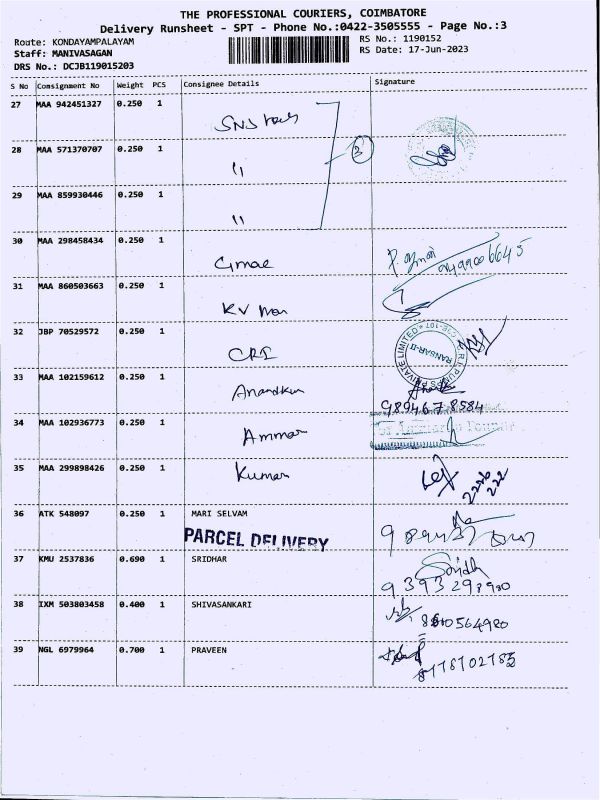 THE PROFESSIONAL COURIERS, COIMBATORE
Delivery Runsheet - SPT - Phone No.:0422-3505555 - Page No.:3
Route: KONDAYAMPALAYAM RS No.: 1190152
Staff: MANIVASAGAN RS Date: 17-Jun-2023
DRS No.: DCJB119015203
S No Consignment No Weight PCS Consignee Details Signature
27 MAA 942451327 0.250 1
28 MAA 571370707 0.250 1 " 3
29 MAA 859930446 0.250 1 "
30 MAA 298458434 0.250 1
31 MAA 860503663 0.250 1 KV
32 JBP 70529572 0.250 1 CRI PRIVATE LIMITED
33 MAA 102159612 0.250 1 Anandkur
9894678584
34 MAA 102936773 0.250 1 Ammar
35 MAA 299898426 0.250 1 Kumar
36 ATK 548097 0.250 1 MARI SELVAM
PARCEL DELIVERY
37 KMU 2537836 0.690 1 SRIDHAR Sridh
9393298980
38 IXM 503803458 0.400 1 SHIVASANKARI
39 NGL 6979964 0.700 1 PRAVEEN